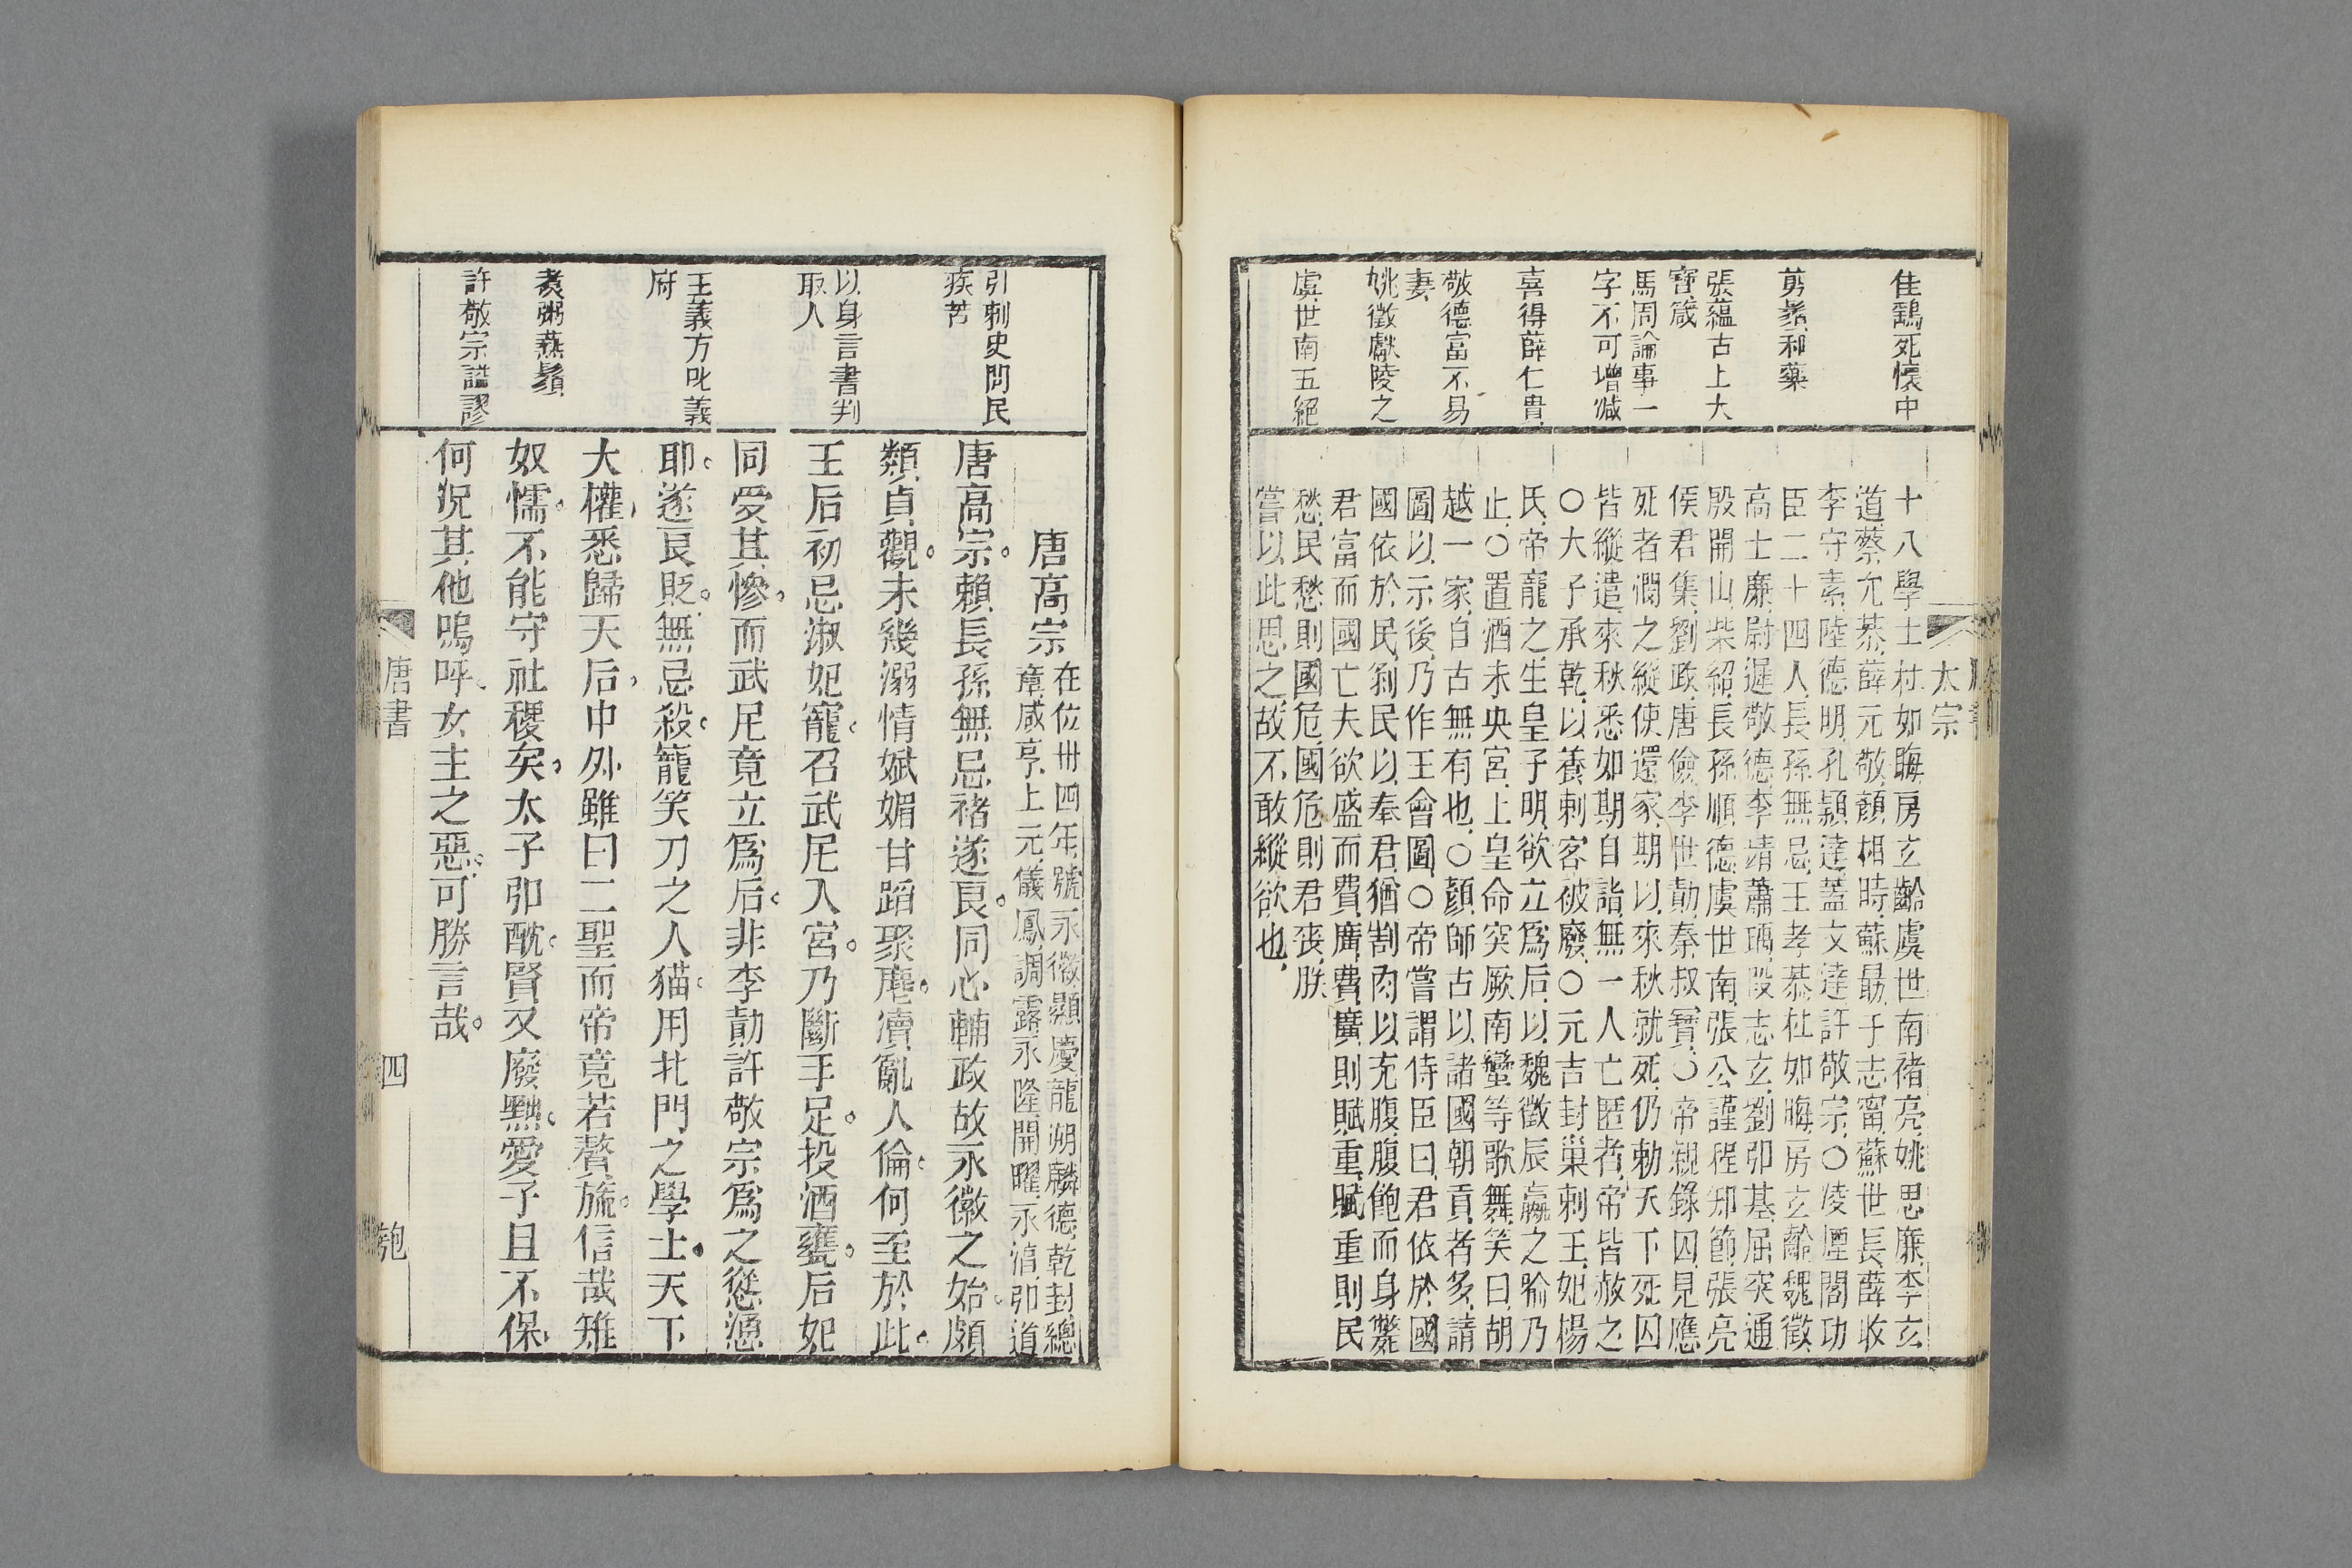 隹鷂死懷中
剪鬚和藥
張蘊古上大
寶箴
馬周論事一
字不可增減
喜得薛仁貴
敬德富不易
妻
姚徵獻陵之
虞世南五絕
太宗
十八學士杜如晦房玄齡虞世南褚亮姚思廉李玄
道蔡允恭薛元敬顏相時蘇勗于志甯蘇世長薛收
李守素陸德明孔穎達蓋文達許敬宗○凌煙閣功
臣二十四人長孫無忌王孝恭杜如晦房玄齡魏徵
高士廉尉遲敬德李靖蕭瑀段志玄劉弘基屈突通
殷開山柴紹長孫順德虞世南張公謹程知節張亮
侯君集劉政唐儉李世勣秦叔寶○帝親錄囚見應
死者憫之縱使還家期以來秋就死仍勅天下死囚
皆縱遣來秋悉如期自詣無一人亡匿者帝皆赦之
○太子承乾以養刺客被廢○元吉封巢刺王妃楊
氏帝寵之生皇子明欲立爲后以魏徵辰嬴之喻乃
止○置酒未央宮上皇命突厥南蠻等歌舞笑曰胡
越一家自古無有也○顏師古以諸國朝貢者多請
圖以示後乃作王會圖○帝嘗謂侍臣曰君依於國
國依於民剝民以奉君猶割肉以充腹腹飽而身斃
君富而國亡夫欲盛而費廣費廣則賦重賦重則民
愁民愁則國危國危則君喪朕
嘗以此思之故不敢縱欲也
引刺史問民
疾苦
以身言書判
取人
王義方叱義
府
煑粥燕鬚
許敬宗謚謬
唐高宗
在位卅四年號永徽顯慶龍朔麟德乾封總
章咸亨上元儀鳳調露永隆開曜永淳弘道
唐高宗賴長孫無忌褚遂良同心輔政故永徽之始頗
類貞觀未幾溺情斌媚甘蹈聚麀瀆亂人倫何至於此
王后初忌淑妃寵召武尼入宮乃斷手足投酒甕后妃
同受其慘而武尼竟立爲后非李勣許敬宗爲之慫慂
耶遂良貶無忌殺籠笑刀之人猫用北門之學士天下
大權悉歸天后中外雖曰二聖而帝竟若贅旒信哉雉
奴懦不能守社稷矣太子弘酖賢又廢黜愛子且不保
何況其他嗚呼女主之惡可勝言哉
唐書
四